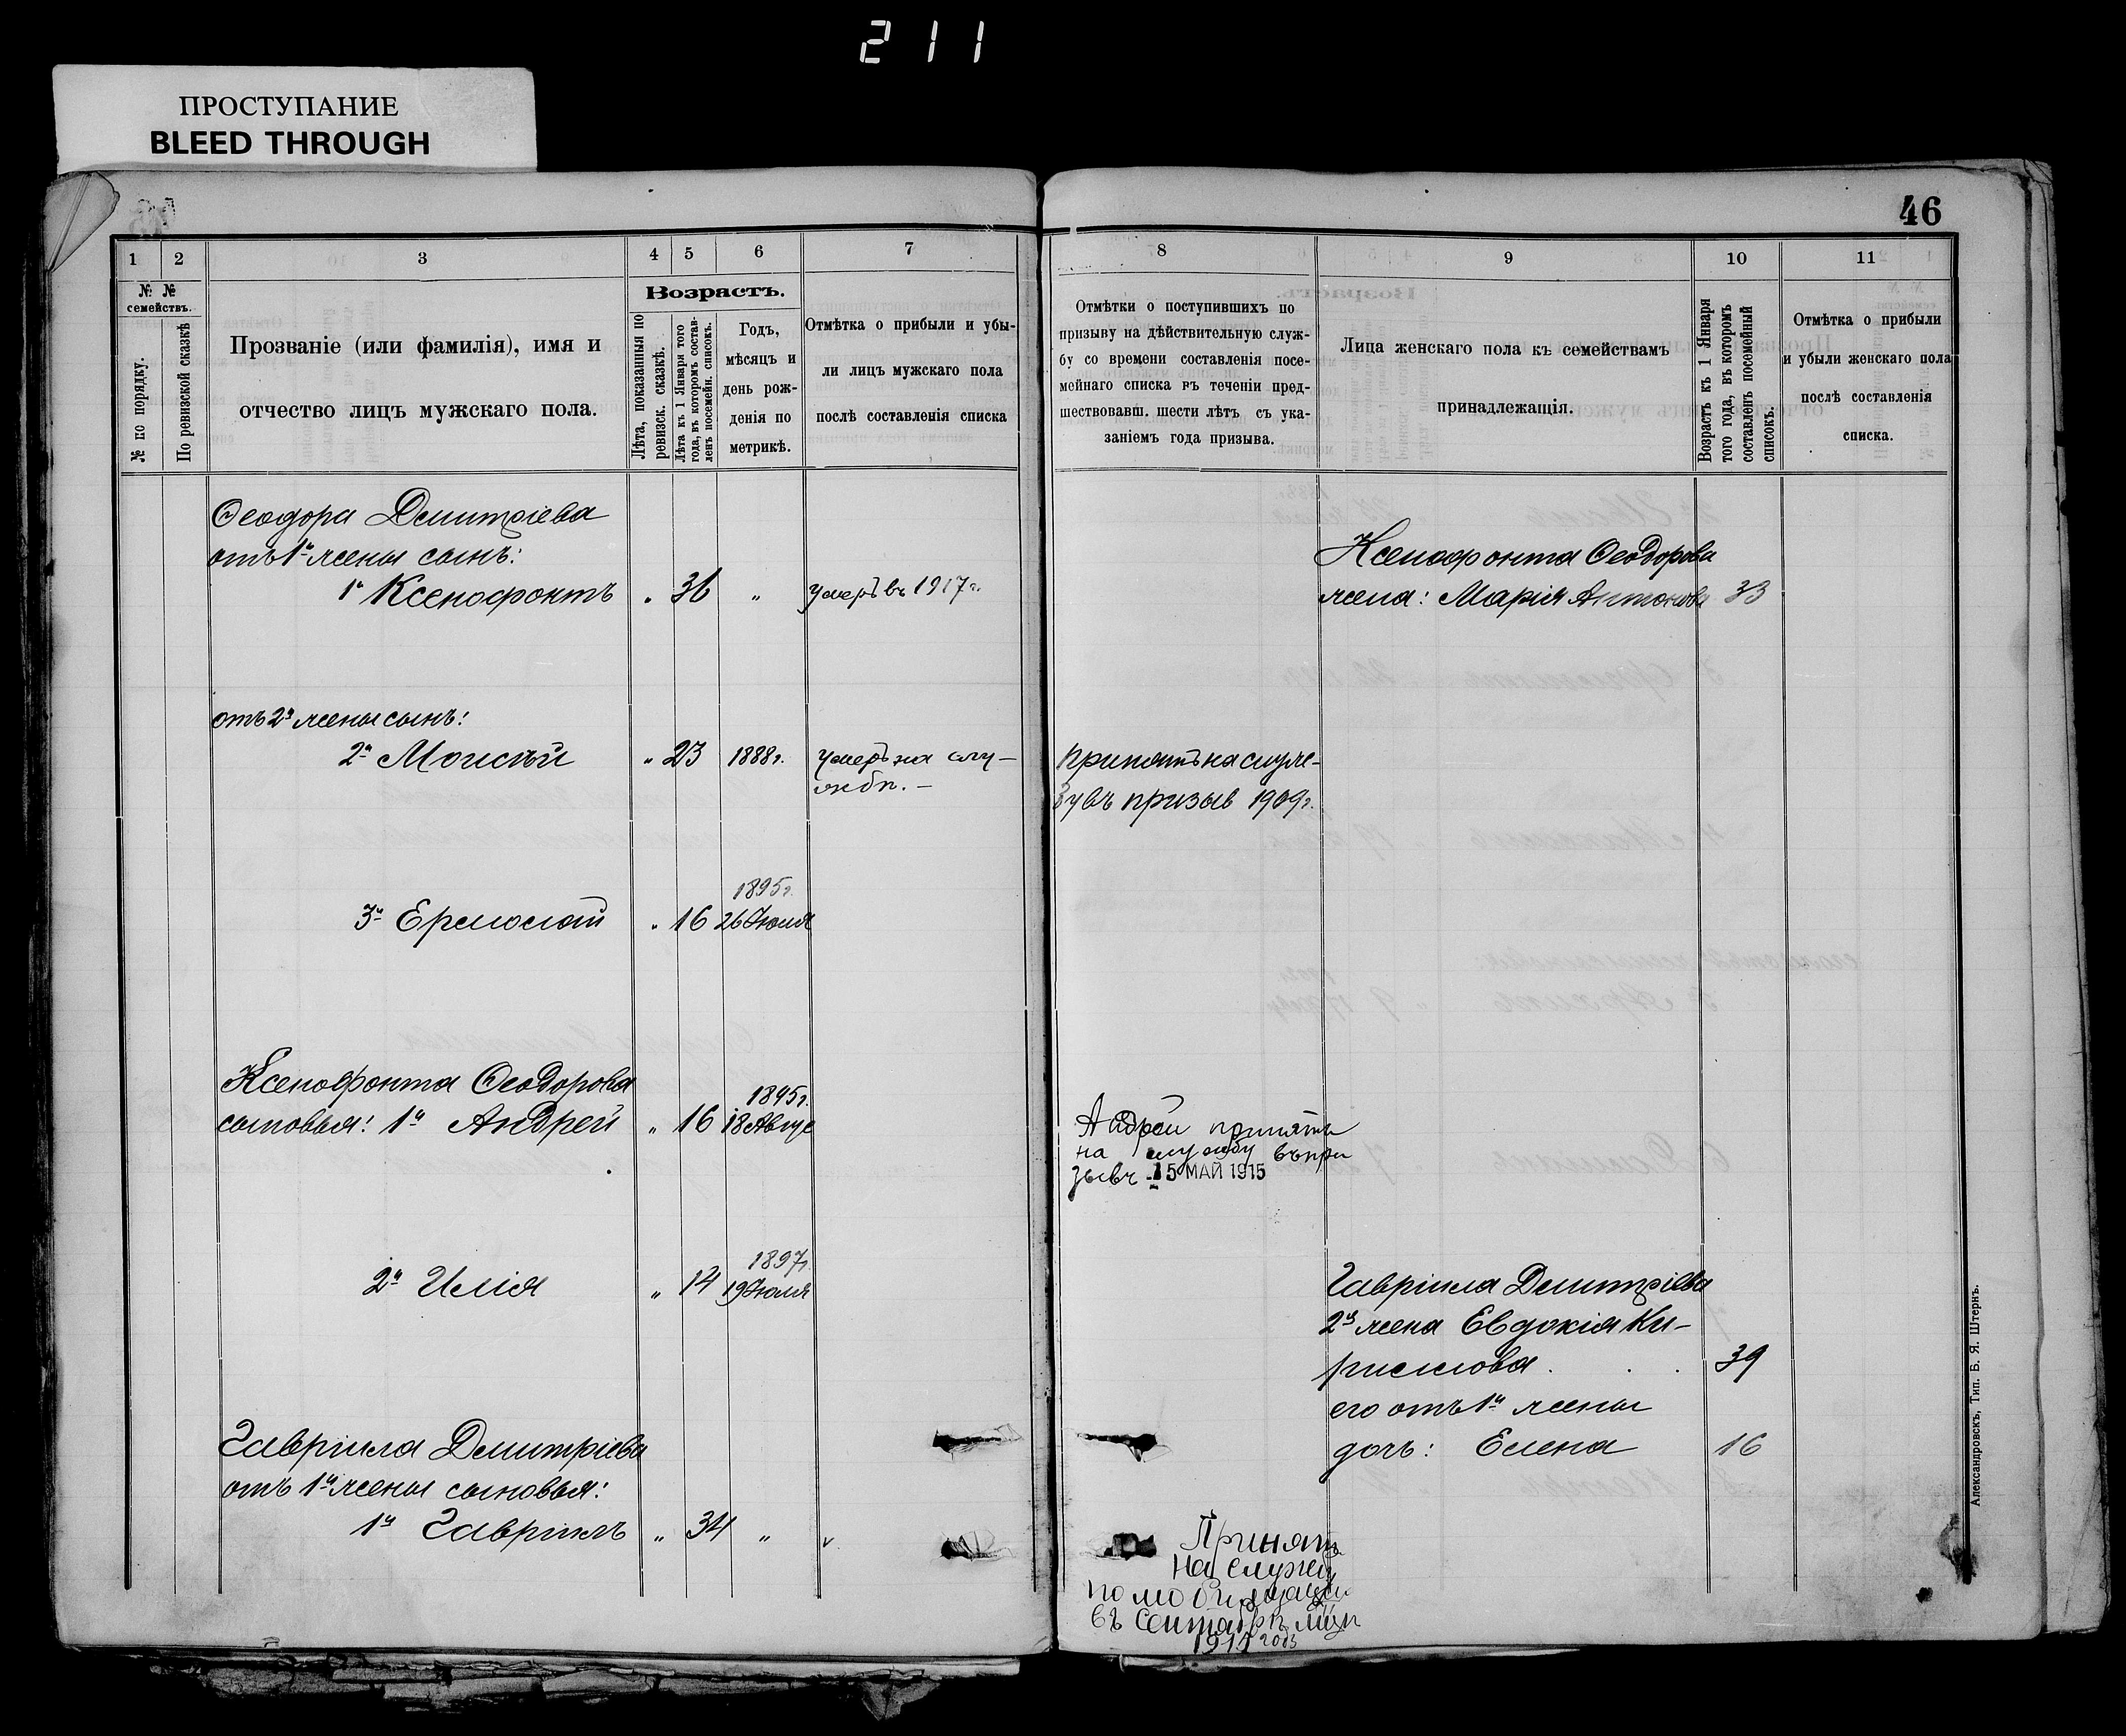 211
ПРОСТУПАНИЕ
BLEED THROUGH
46
1 2 3 4 5 6 7
№ № семействъ.
№ по порядку.
По ревизской сказкѣ
Прозваніе (или фамилія), имя и
отчество лицъ мужскаго пола.
Возрастъ.
Лѣта, показанныя по
ревизск. сказкѣ.
Лѣта къ 1 Января того
года, въ которомъ состав-
ленъ посемейн. списокъ.
Годъ,
мѣсяцъ и
день рож-
денія по
метрикѣ.
Отмѣтка о прибыли и убы-
ли лицъ мужскаго пола
послѣ составленія списка
8 9 10 11
Отмѣтки о поступившихъ по
призыву на дѣйствительную служ-
бу со времени составленія посе-
мейнаго списка въ теченіи пред-
шествовавш. шести лѣтъ съ ука-
заніемъ года призыва.
Лица женскаго пола къ семействамъ
принадлежащія.
Возрастъ къ 1 Января
того года, въ которомъ
составленъ посемейный
списокъ.
Отмѣтка о прибыли
и убыли женскаго пола
послѣ составленія
списка.
Ѳеодора Димитріева
отъ 1й жены сынъ:
1й Ксенофонтъ " 36 " умеръ въ 1917г.
отъ 2й жены сынъ:
2й Моисѣй " 23 1888г. умеръ на слу-
жбѣ. —
1895г.
3й Ермолай " 16 26 Іюля
Ксенофонта Ѳеодорова
1895г.
сыновья: 1й Андрей " 16 18 Авгус
1897г.
2й Илія " 14 19 Іюля
Гавріила Димитріева
отъ 1й жены сыновья:
1й Гавріилъ " 34 " v
Ксенофонта Ѳеодорова
жена: Марія Антонова 33
Принятъ на служ-
бу въ призыв 1909г.
Андрей принятъ
на службу въ при
зывъ 15 МАЙ 1915
Гавріила Димитріева
2я жена Евдокія Ки-
риллова . . 39
его отъ 1й жены
дочь: Елена 16
Принятъ
на службу
по мобилизаціи
въ Сентябрѣ мцѣ
годъ
Александровскъ, Тип. Б. Я. Штернъ.